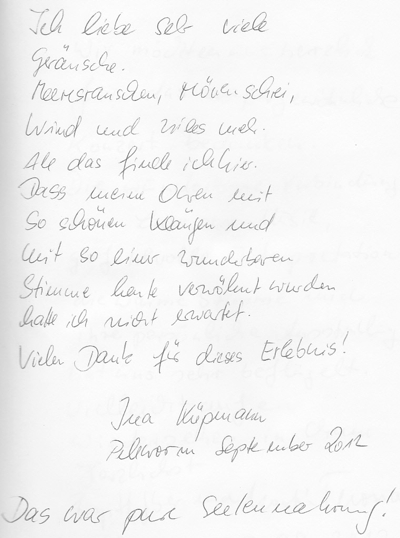 Ich liebe sehr viele
Geräusche.
Meeresrauschen, Mövenschrei,
Wind und vieles mehr.
Alle das finde ich hier.
Dass meine Ohren mit
so schönen Klängen und
mit so einer wunderbaren
Stimme heute verwöhnt wurden
hatte ich nicht erwartet.
Vielen Dank für dieses Erlebnis!
Ina
Pellworm September 2012
Das war pure Seelennahrung!